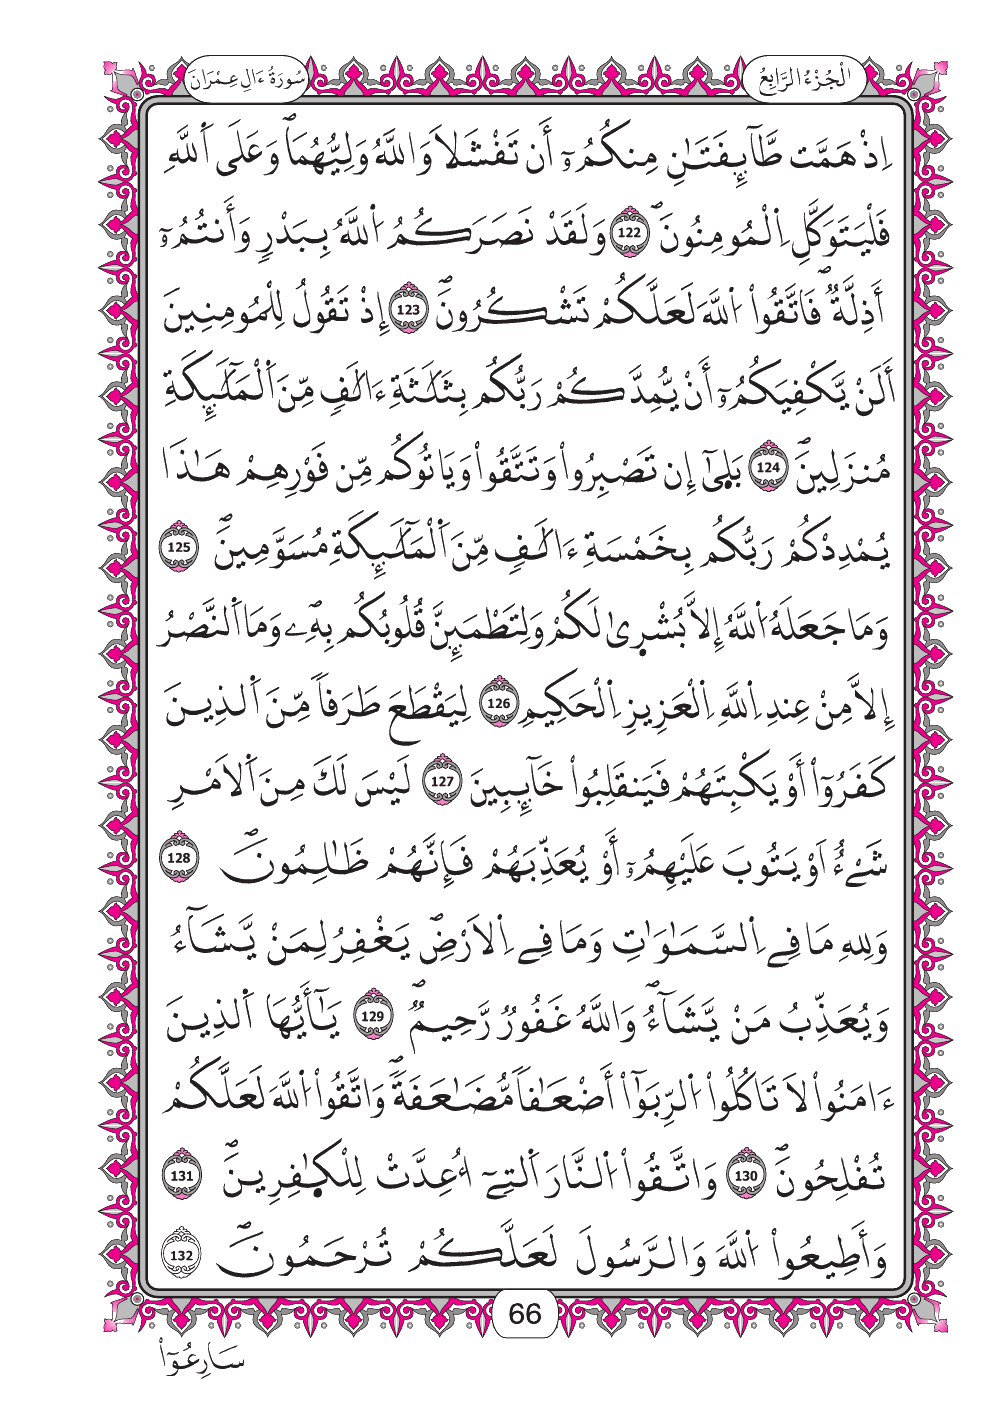 سُورَةُ ءَالِ عِمْرَانَ
اَلْجُزْءُ الرَّابِعُ
اِذْ هَمَّت طَّآئِفَتَٰنِ مِنكُمُۥٓ أَن تَفْشَلَا وَاللَّهُ وَلِيُّهُمَاۖ وَعَلَى اَ۬للَّهِ
فَلْيَتَوَكَّلِ اِ۬لْمُومِنُونَۖ 122 وَلَقَدْ نَصَرَكُمُ اُ۬للَّهُ بِبَدْرٍ وَأَنتُمُۥٓ
أَذِلَّةٞۖ فَاتَّقُواْ اُ۬للَّهَ لَعَلَّكُمْ تَشْكُرُونَۖ 123 إِذْ تَقُولُ لِلْمُومِنِينَ
أَلَنْ يَّكْفِيَكُمُۥٓ أَنْ يُّمِدَّكُمْ رَبُّكُم بِثَلَٰثَةِ ءَالَٰفٍ مِّنَ اَ۬لْمَلَٰٓئِكَةِ
مُنزَلِينَۖ 124 بَل۪يٰٓ إِن تَصْبِرُواْ وَتَتَّقُواْ وَيَاتُوكُم مِّن فَوْرِهِمْ هَٰذَا
يُمْدِدْكُمْ رَبُّكُم بِخَمْسَةِ ءَالَٰفٍ مِّنَ اَ۬لْمَلَٰٓئِكَةِ مُسَوَّمِينَۖ 125
وَمَا جَعَلَهُ اُ۬للَّهُ إِلَّا بُشْر۪يٰ لَكُمْ وَلِتَطْمَئِنَّ قُلُوبُكُم بِهِۦۖ وَمَا اَ۬لنَّصْرُ
إِلَّا مِنْ عِندِ اِ۬للَّهِ اِ۬لْعَزِيزِ اِ۬لْحَكِيمِ 126 لِيَقْطَعَ طَرَفاٗ مِّنَ اَ۬لذِينَ
كَفَرُوٓاْ أَوْ يَكْبِتَهُمْ فَيَنقَلِبُواْ خَآئِبِينَ 127 لَيْسَ لَكَ مِنَ اَ۬لَامْرِ
شَےْءٌ اَوْ يَتُوبَ عَلَيْهِمُۥٓ أَوْ يُعَذِّبَهُمْ فَإِنَّهُمْ ظَٰلِمُونَۖ 128
وَلِلهِ مَا فِے اِ۬لسَّمَٰوَٰتِ وَمَا فِے اِ۬لَارْضِۖ يَغْفِرُ لِمَنْ يَّشَآءُ
وَيُعَذِّبُ مَنْ يَّشَآءُۖ وَاللَّهُ غَفُورٞ رَّحِيمٞۖ 129 يَٰٓأَيُّهَا اَ۬لذِينَ
ءَامَنُواْ لَا تَاكُلُواْ اُ۬لرِّبَوٰٓاْ أَضْعَٰفاٗ مُّضَٰعَفَةٗۖ وَاتَّقُواْ اُ۬للَّهَ لَعَلَّكُمْ
تُفْلِحُونَۖ 130 وَاتَّقُواْ اُ۬لنَّارَ اَ۬لتِےٓ أُعِدَّتْ لِلْكٰ۪فِرِينَۖ 131
وَأَطِيعُواْ اُ۬للَّهَ وَالرَّسُولَ لَعَلَّكُمْ تُرْحَمُونَۖ 132
66
سَارِعُوٓاْ